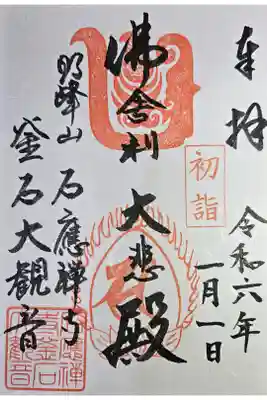 奉拝
令和六年
一月一日
初詣
佛舎利 大悲殿
明峰山 石應禅寺
釜石大観音